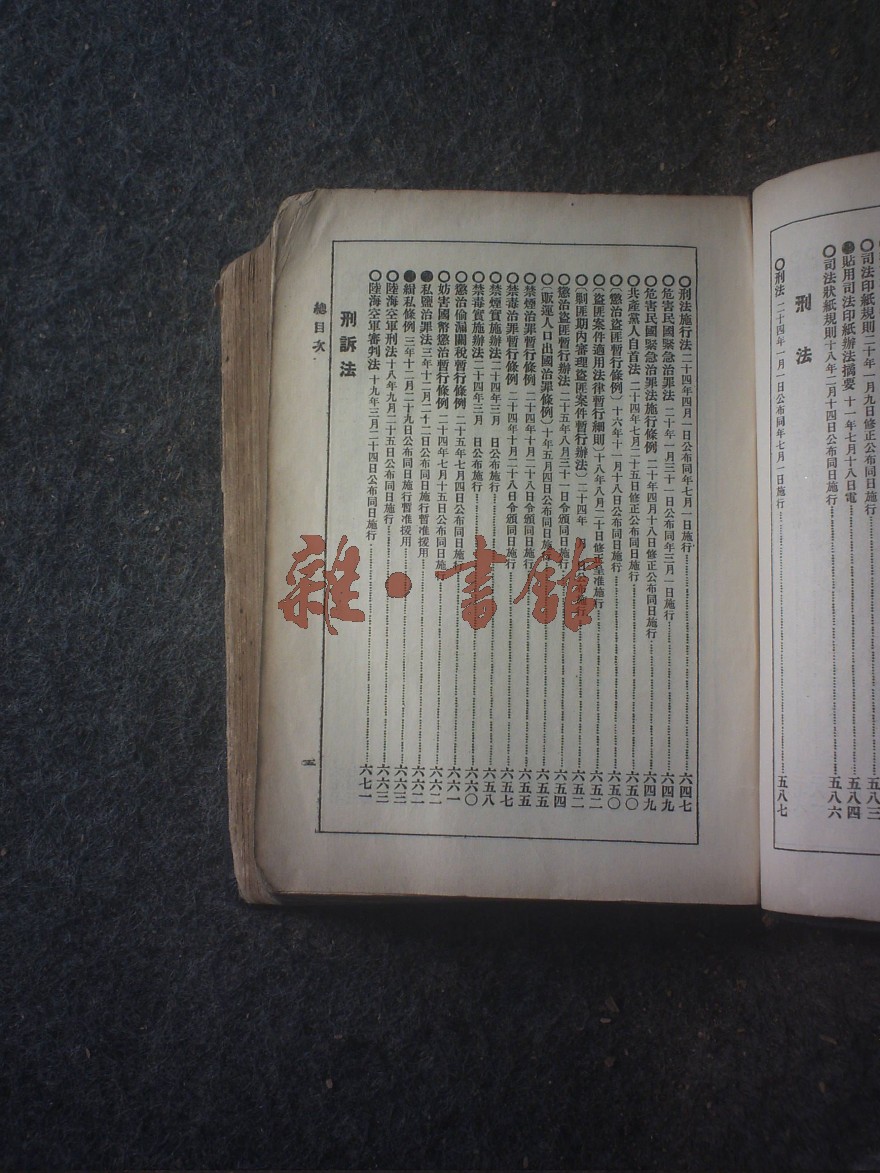 ○司法印紙規則二十年一月九日修正公布同日施行……五八三
●貼用司法印紙辦法摘要 十一年七月十八日電……五八四
○司法狀紙規則十八年二月十四日公布同日施行……五八六
刑法
○刑法 二十四年一月一日公布同年七月一日施行……五八七
○刑法施行法二十四年四月一日公布同年七月一日施行……六四七
○危害民國緊急治罪法 二十年一月三十一日公布同年三月一日施行……六四九
○危害民國緊急治罪法施行條例 二十年四月十八日修正公布同日施行……六四九
○共產黨人自首法 二十四年七月二十五日修正公布同日施行……六五〇
○〔懲治盜匪暫行條例〕十六年十一月十八日公布同日施行……六五〇
○〔盜匪案件適用法律暫行細則〕十八年八月二十日修正呈准施行……六五二
○〔剿匪期內審理盜匪案件暫行辦法〕二十四年 月 日公布施行……六五二
○懲治盜匪暫行辦法 二十五年八月三十一日令頒同日施行……六五四
○〔販運人口出國治罪條例〕十年五月四日公布同日施行……六五五
○禁煙治罪暫行條例 二十四年十月二十八日令頒同日施行……六五五
○禁毒治罪暫行條例 二十四年十月二十八日令頒同日施行……六五七
○禁煙實施辦法二十四年三月 日公布施行……六五八
○禁毒實施辦法二十四年三月 日公布施行……六六〇
○懲治偷漏關稅暫行條例 二十五年七月四日公布同日施行……六六一
○妨害國幣懲治暫行條例 二十四年七月十五日公布同日施……六六二
●私鹽治罪法三年十二月二十二日公布同日施行暫准援用……六六二
●緝私條例 三年十二月二十九日公布同日施行暫准援用……六六三
○陸海空軍刑法十八年九月二十五日公布同日施行……六六三
○陸海空軍審判法 十九年三月二十四日公布同日施行……六七一
刑訴法
總目次
五
雜·書館